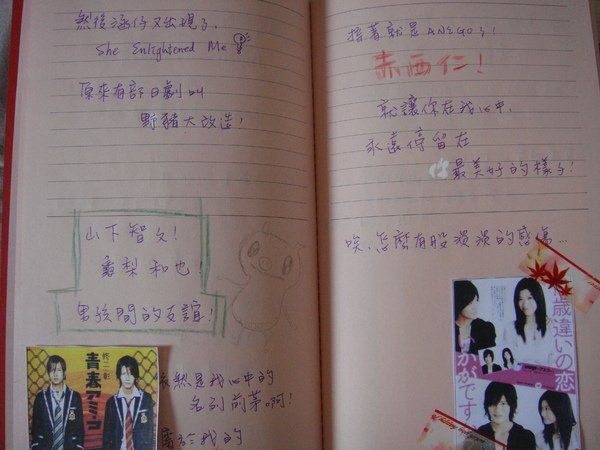 然後涵仔又出現了,
She Enlightened Me
原來有部日劇叫
野豬大改造!
山下智久!
龜梨和也!
男孩間的友誼!
修二と彰
青春アミーゴ
依然是我心中的
名列前茅啊!
屬於我的
接著就是ANEGO了!
赤西仁!
就讓你在我心中,
永遠停留在
最美好的樣子!
唉,怎麼有股濃濃的感傷…
歳違いの恋
いかがです